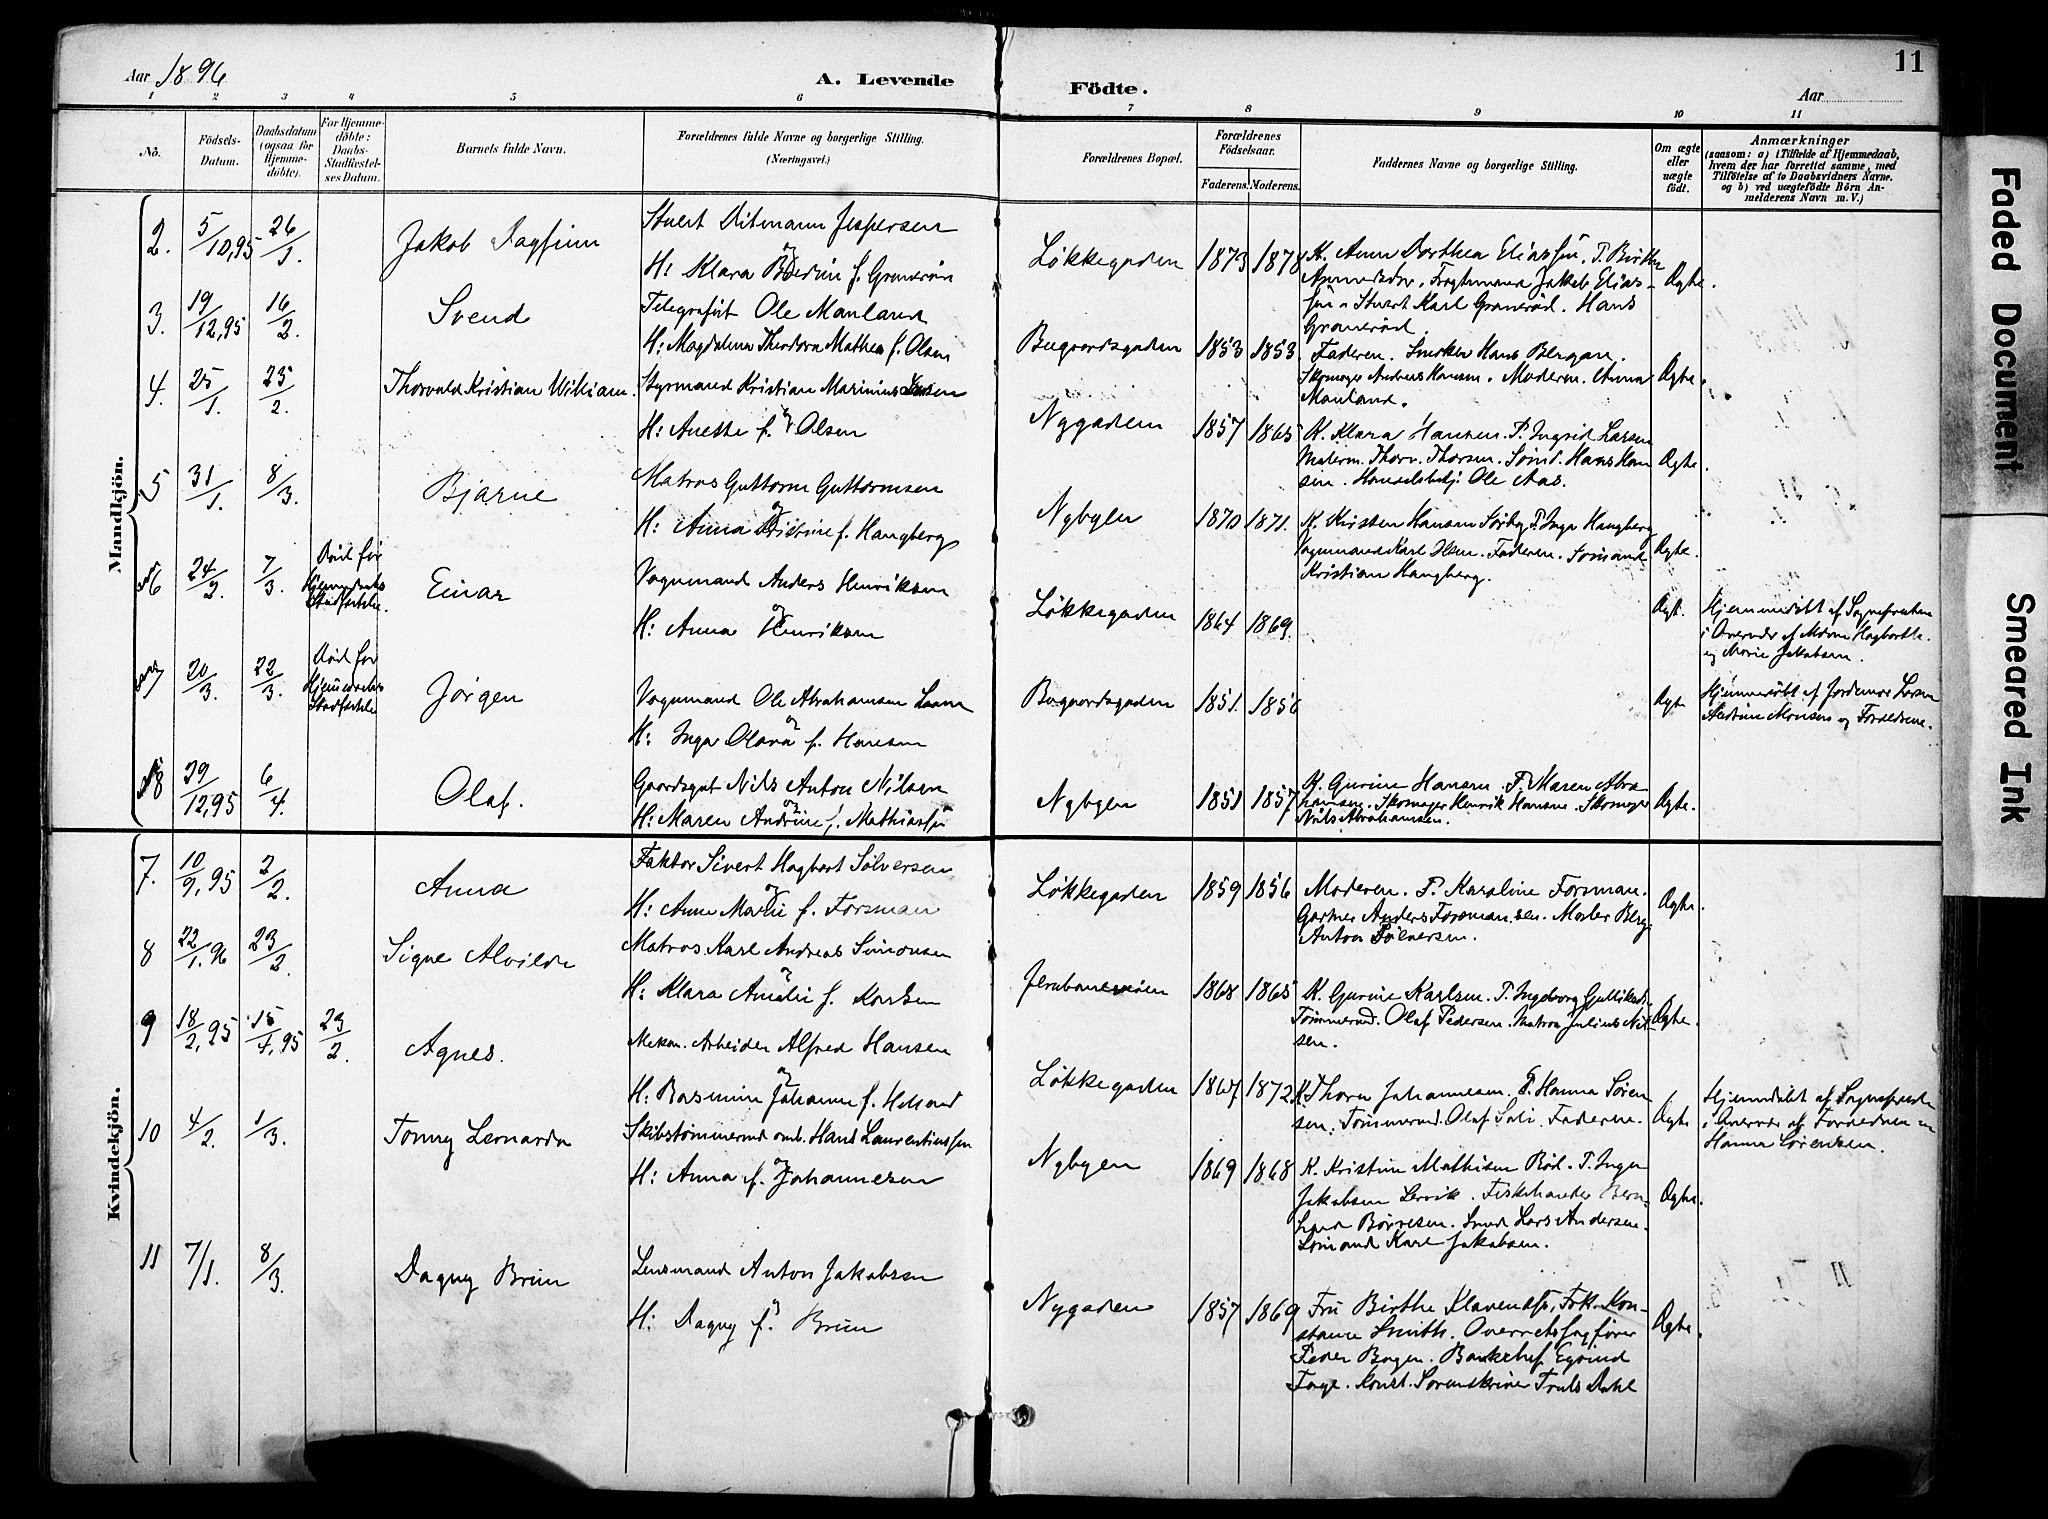 Aar 1896
A. Levende
Födte.
Aar
11
1 2 3 4 5 6 7 8 9 10 11
No.
Födsels-Datum.
Daabsdatum (ogsaa for Hjemme-döbte).
For Hjemme-döbte: Daabs-Stadfæstel-ses Datum.
Barnets fulde Navn.
Forældrenes fulde Navne og borgerlige Stilling. (Næringsvei.)
Forældrenes Bopæl.
Forældrenes Födselsaar.
Faderens. Moderens.
Faddernes Navne og borgerlige Stilling.
Om ægte eller uægte født.
Anmærkninger
(saasom: a) i Tilfælde af Hjemmedaab, hvem der har forrettet samme, med Tilföielse af to Daabsvidners Navne. og b) ved uægtefödte Börn An-melderens Navn m. V.)
Mandkjön.
2. 5/10,95 26/1. Jakob Dagfinn
Stuert Ditmann Jespersen
H: Klara f. Granerön
Løkkegaden 1873 1878
K. Anne Dorthea Eliassen. P. Birthe
Fragtmand Jakob Elias-
sen. Stuert Karl Granerød. Hans
Granerød.
Ægte.
3. 19/12,95 16/2. Svend
Telegrafist Ole Manland
H: Magdalena Theodora Mathea f. Olsen
Bugaardsgaden 1853 1853.
Faderen. Snedker Hans Bergan.
Skomager Andreas Hansen. Moderen. Anna
Manland.
Ægte.
4. 25/1. 23/2. Thorvald Kristian William.
Styrmand Kristian Marinius
H: Anette f. Olsen
Nygaden 1857 1865
K. Klara Hansen. P. Ingrid Larsen
Thorv. Thorsen. Sømd. Hans Han
sen. Handelsbetj. Ole Aas.
Ægte.
5 31/1. 8/3. Bjarne
Matros Guttorm Guttormsen
H: Anna f. Haugberg
Nybyen 1870 1871.
K. Kirsten Hansen Sørby P. Inga Haugberg
Vognmand Karl Olsen. Faderen. Sømand
Kristian Haugberg.
Ægte.
6 24/2. 7/3. Død før
Hjemmedaabs
Stadfæstelse.
Einar
Vognmand Anders Henriksen
H: Anna Henriksen
Løkkegaden 1864 1869.
Ægt.
Hjemmedøbt af Sognepresten
i Overvær af Hagbartha
og Marie Jakobsen.
7 20/3. 22/3. Død før
Hjemmedaabs
Stadfæstelse
Jørgen
Vognmand Ole Abrahamsen
H: Inga Olava f. Hansen
Bugaardsgaden 1851. 1856
Ægt.
Hjemmedøbt af Jordemor Larsen
og Forældrene.
8 29/12,95 6/4. Olaf.
Gaardsgut Nils Anton Nilsen
H: Maren Andrine f. Mathiassen
Nybyen 1851 1857
K. Gurine Hansen. P. Maren Abra
hamsen. Skomager Henrik Hansen. Skomager
Nils Abrahamsen.
Ægte.
Kvindekjön.
7. 10/9,95 2/2. Anna
Faktor Sivert Hagbart Sølversen
H: Anne Marie f. Forsman
Løkkegaden 1859 1856
Moderen. P. Karoline Forsman.
Gartner Anders Forsman. sen. Maler Berg
Anton Sølversen.
Ægte.
8 22/1.96 23/2. Signe Alvilde
Matros Karl Andreas Simonsen
H: Klara Amalie f. Karlsen
Jernbaneveien 1868 1865
K. Gurine Karlsen. P. Ingeborg Gulliksen.
Tømmermd. Olaf Pedersen. Matros Julius Nil
sen.
Ægte.
9 18/2,95 15/4,95 23/2. Agnes.
Mekan. Arbeider Alfred Hansen
H: Rasmine Johanne f. Helland
Løkkegaden 1867 1872
K Thora Johannesen P. Hanna Søren
sen. Tømmermd. Olaf Faderen.
Ægte
Hjemmedøbt af Sognepresten
i Overvær af Forældrene og
Hanna Sørensen.
10 4/2. 1/3. Tonny Leonarda
Skibstømmermd Hans Laurentiussen
H: Anna f. Johannesen
Nybyen 1869 1868
K. Kristine Mathisen Rød. P. Inga
Jakobsen Lervik. Fiskehandler Bern-
hard Børresen. Smed Lars Andersen.
Sømand Karl Jakobsen.
Ægte.
11 7/1. 8/3. Dagny Brun
Lensmand Anton Jakobsen
H: Dagny f. Brun
Nygaden 1857 1869
Fru Birthe Frk. Kon-
stance Smith. Overretssagfører
Peder Bogen. Bankchef Eyvind
Konst. Sorenskriver Truls Dahl
Ægte.
Faded Document
Smeared Ink